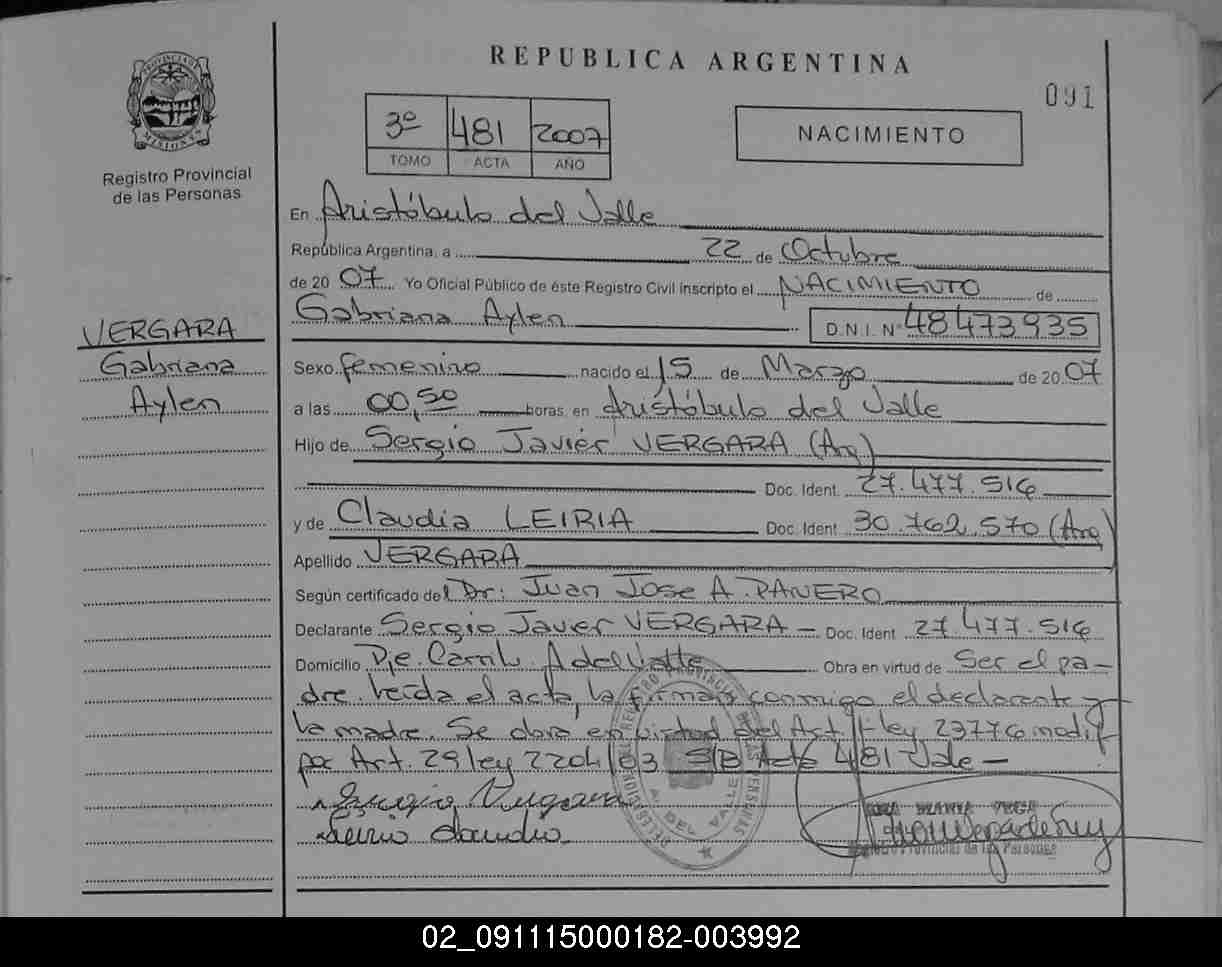 REPUBLICA ARGENTINA
091
PROVINCIA DE MISIONES
Registro Provincial
de las Personas
3º 481 2007
TOMO ACTA AÑO
NACIMIENTO
En Aristóbulo del Valle
República Argentina, a 22 de Octubre
de 2007 Yo Oficial Público de éste Registro Civil inscripto el NACIMIENTO de
Gabriana Aylen D.N.I. Nº 48473935
VERGARA
Gabriana
Aylen
Sexo femenino nacido el 15 de Marzo de 2007
a las 00,50 horas, en Aristóbulo del Valle
Hijo de Sergio Javier VERGARA (Arg)
Doc. Ident. 27.477.516
y de Claudia LEIRIA Doc. Ident 30.762.570 (Arg)
Apellido VERGARA
Según certificado del Dr: Juan Jose A. PANERO
Declarante Sergio Javier VERGARA - Doc. Ident 27.477.516
Domicilio A del Valle Obra en virtud de Ser el pa-
dre. Leída el acta, la firman conmigo el declarante y
la madre. Se obra en virtud del Art. 1º ley 23776 modif
por Art. 29 ley 22041/03 S/B Acta 481 Vale -
Sergio Vergara
Leiria Claudia
DELEGACION DEL REGISTRO PROVINCIAL DE LAS PERSONAS
A. DEL VALLE
MARIA VEGA
Registro Provincial de las Personas
02_091115000182-003992